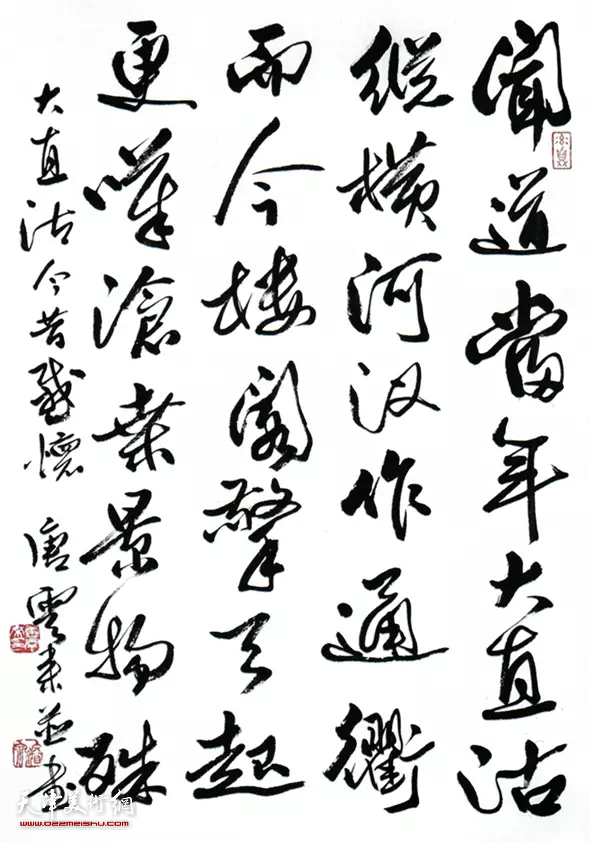 聞道當年大直沽
縱横河汊作通衢
而今樓閣擎天起
更嘆滄桑景物殊
大直沽今昔感懷 唐雲来並書
天津美術網
www.022meishu.com